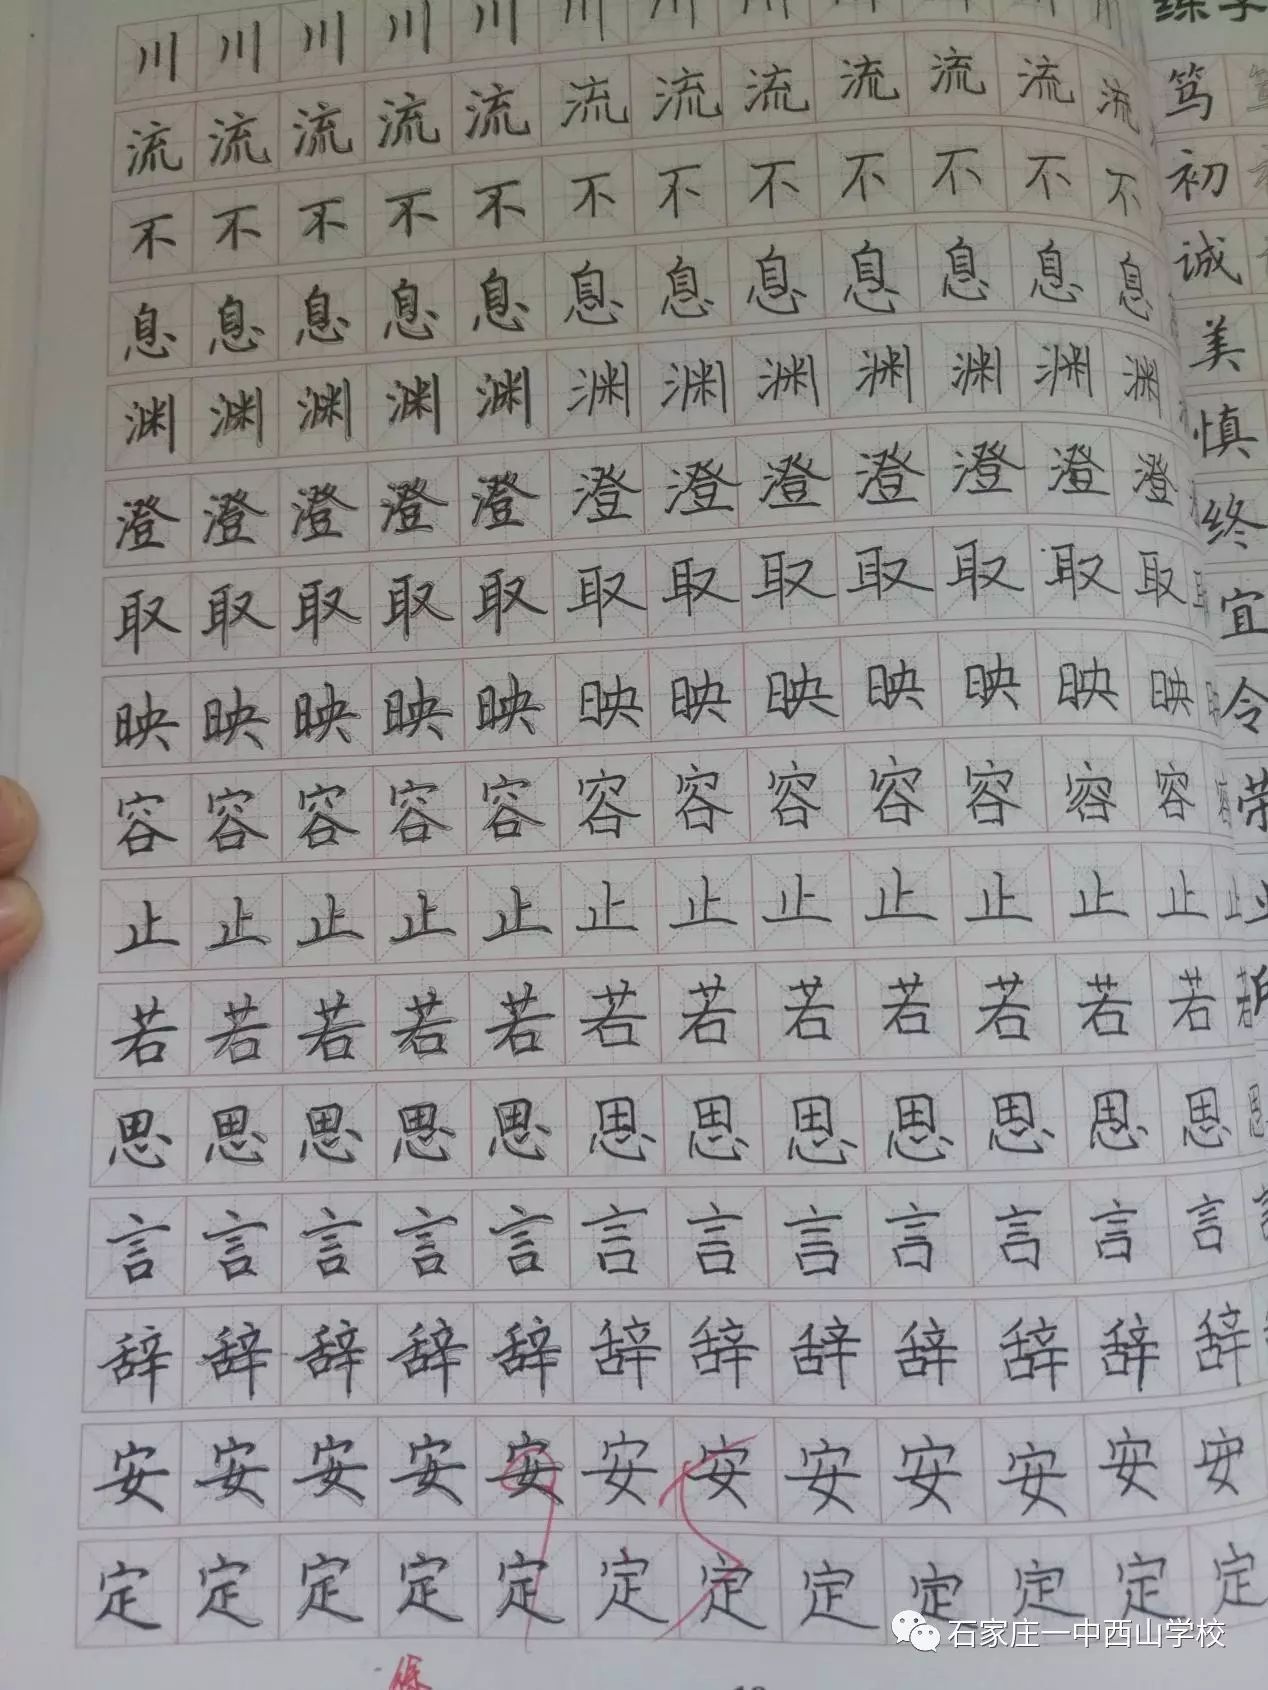 川川川川川川川川川川川川
流流流流流流流流流流流流
不不不不不不不不不不不不
息息息息息息息息息息息息
渊渊渊渊渊渊渊渊渊渊渊渊
澄澄澄澄澄澄澄澄澄澄澄澄
取取取取取取取取取取取取
映映映映映映映映映映映映
容容容容容容容容容容容容
止止止止止止止止止止止止
若若若若若若若若若若若若
思思思思思思思思思思思思
言言言言言言言言言言言言
辞辞辞辞辞辞辞辞辞辞辞辞
安安安安安安安安安安安安
定定定定定定定定定定定定
练字
笃
初
诚
美
慎
终
宜
令
荣
业
所
石家庄一中西山学校